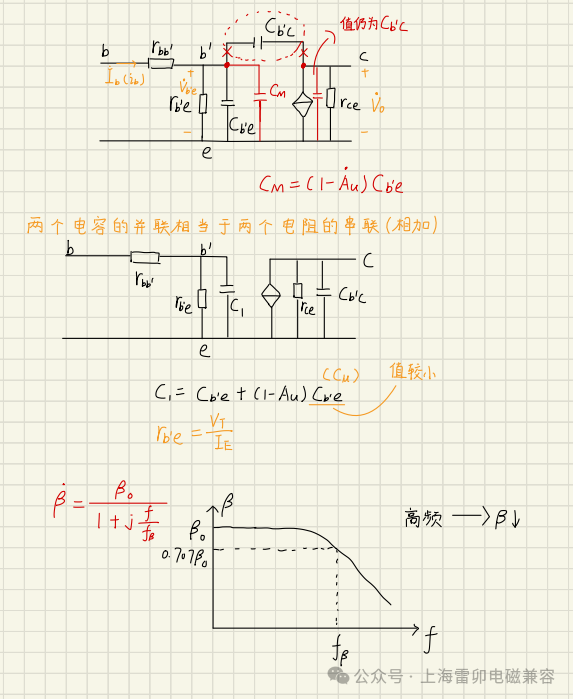 C_b'c 值仍为C_b'c
b r_bb' b' c
İ_b(i_b) + V̇_b'e - r_b'e C_b'e C_M r_ce + V̇_o -
e
C_M = (1-Ȧu) C_b'e
两个电容的并联相当于两个电阻的串联(相加)
b r_bb' b' C
r_b'e C_1 r_ce C_b'c
e
(Cu) 值较小
C_1 = C_b'e + (1-Au) C_b'e
r_b'e = V_T / I_E
β̇ = β_0 / (1 + j f/f_β)
β
β_0
0.707β_0
高频 → β↓
f_β f
公众号 · 上海雷卯电磁兼容